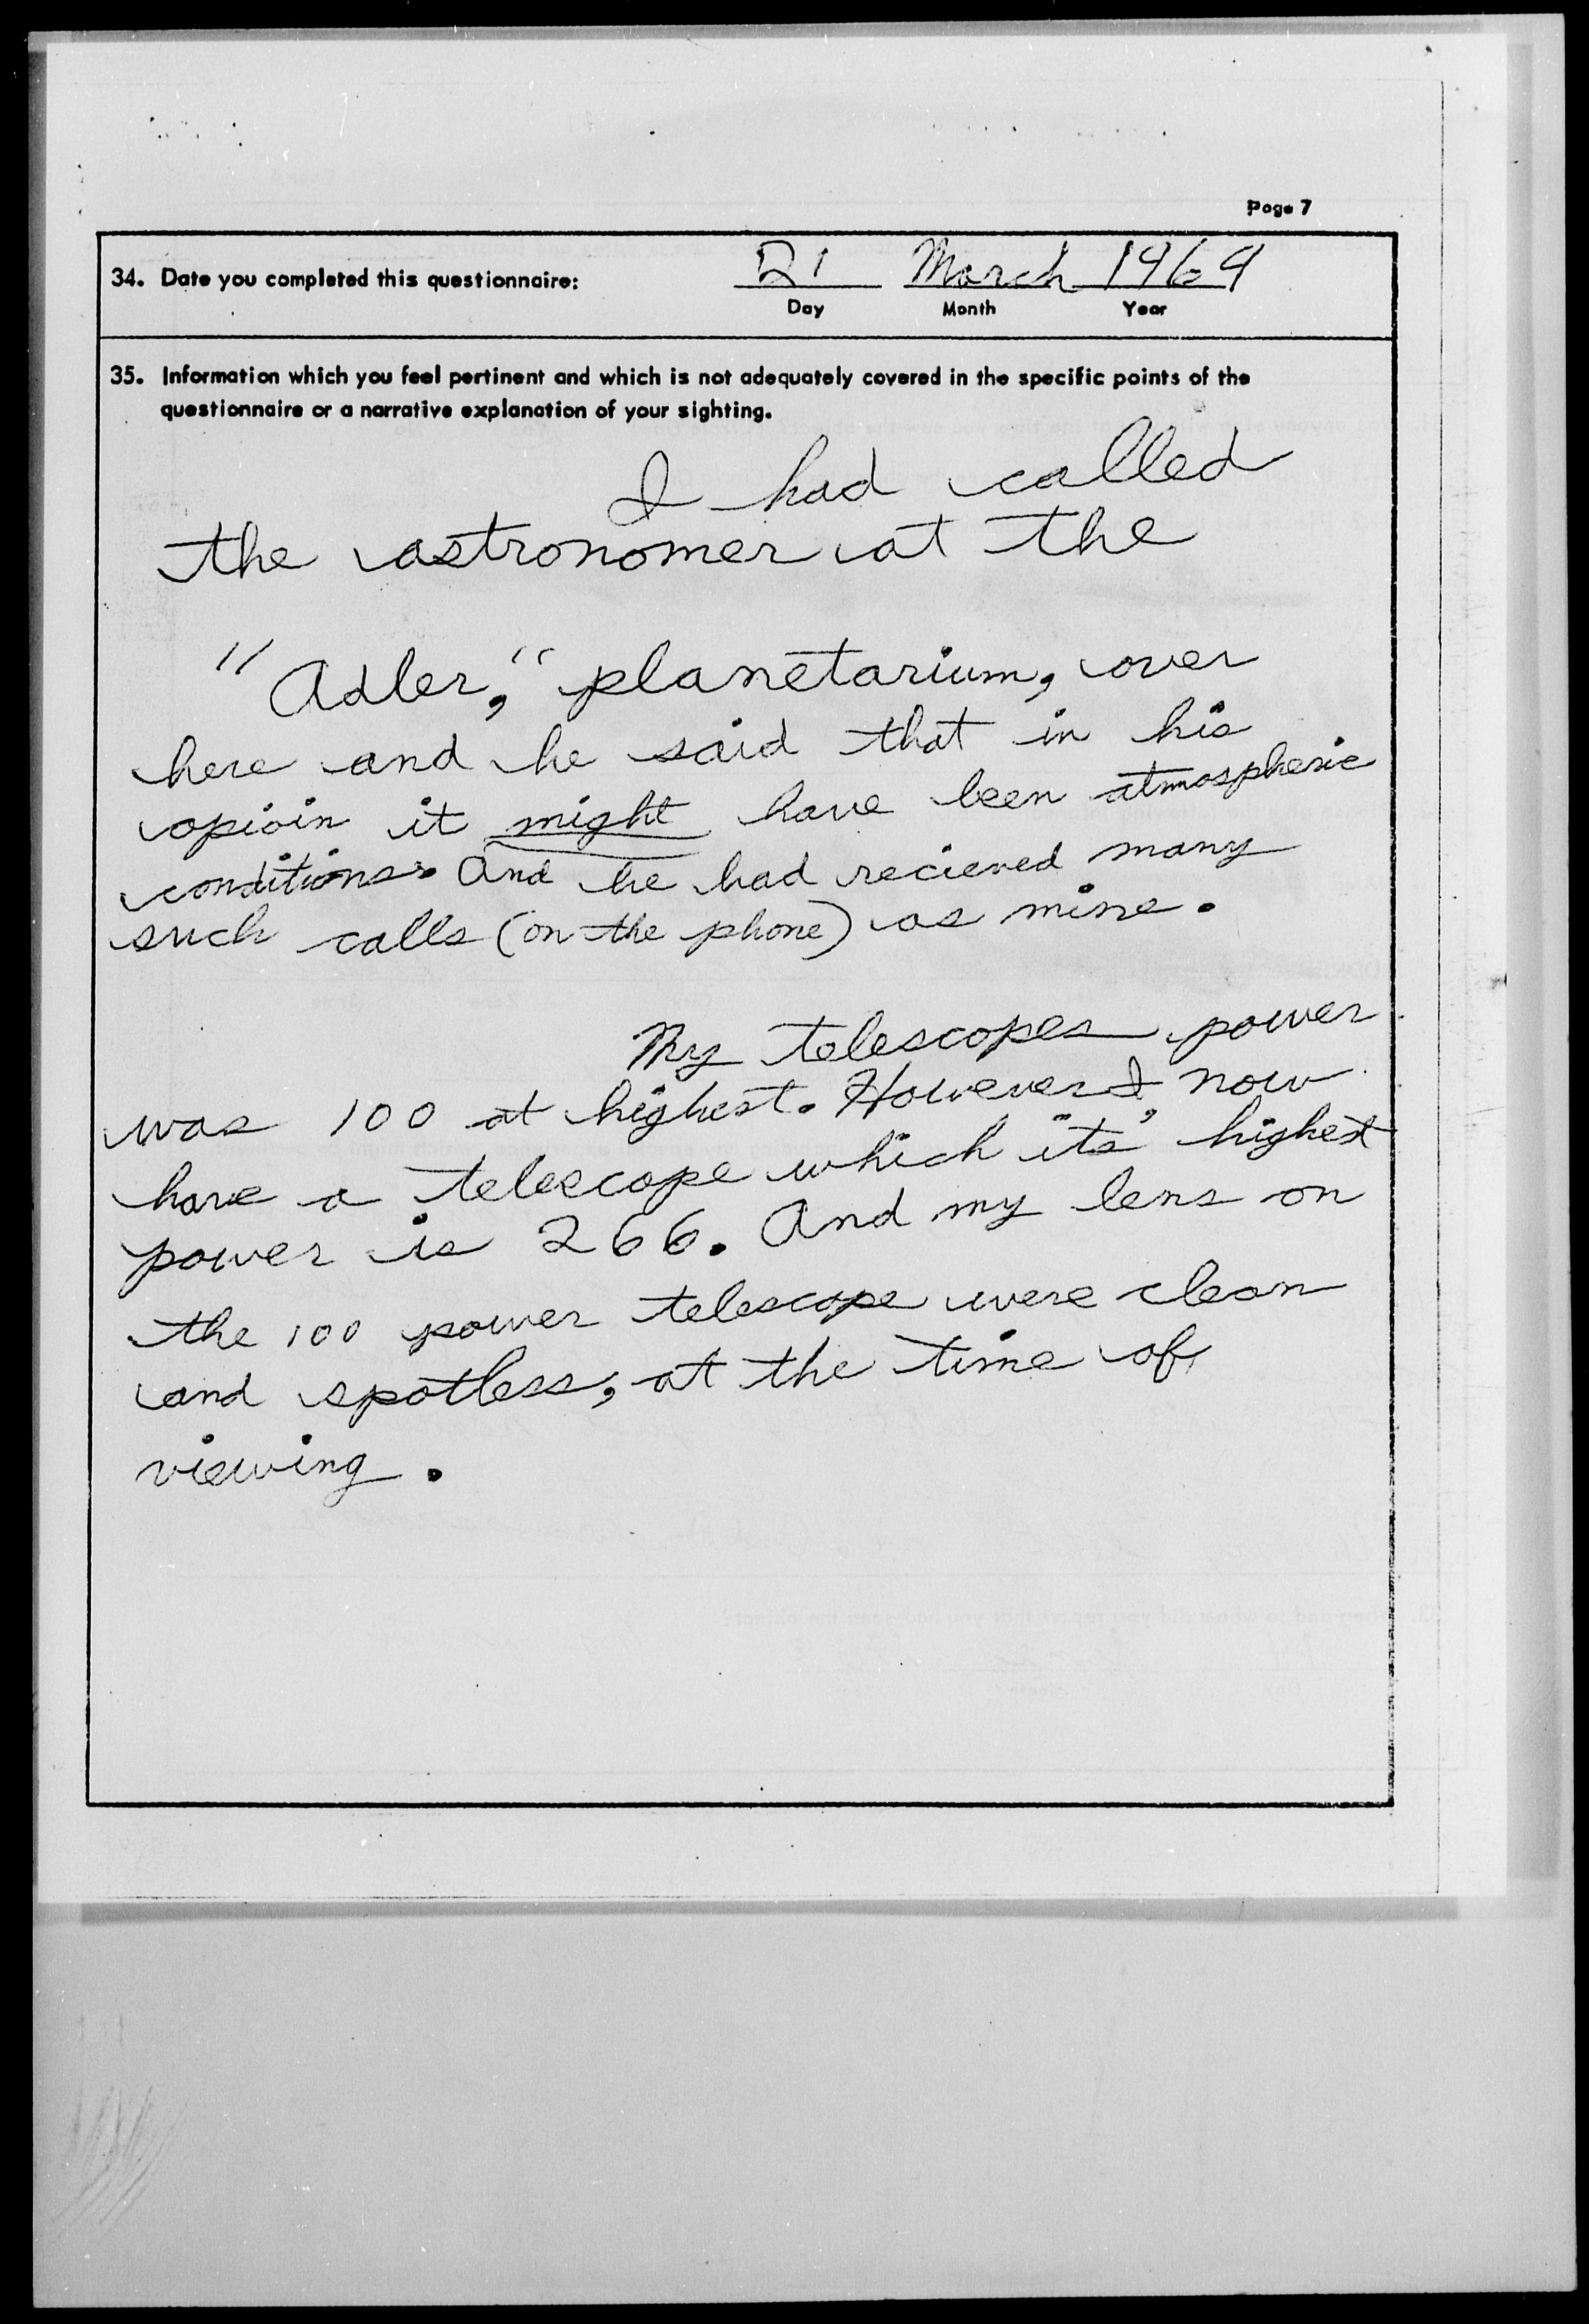 Page 7
34. Date you completed this questionnaire: 21 March 1969
Day Month Year
35. Information which you feel pertinent and which is not adequately covered in the specific points of the
questionnaire or a narrative explanation of your sighting.
I had called
the astronomer at the
"Adler," planetarium, over
here and he said that in his
opioin it might have been atmospheric
conditions. And he had recieved many
such calls (on the phone) as mine.
My telescopes power
was 100 at highest. However I now
have a telescope which "its" highest
power is 266. And my lens on
the 100 power telescope were clean
and spotless, at the time of
viewing.